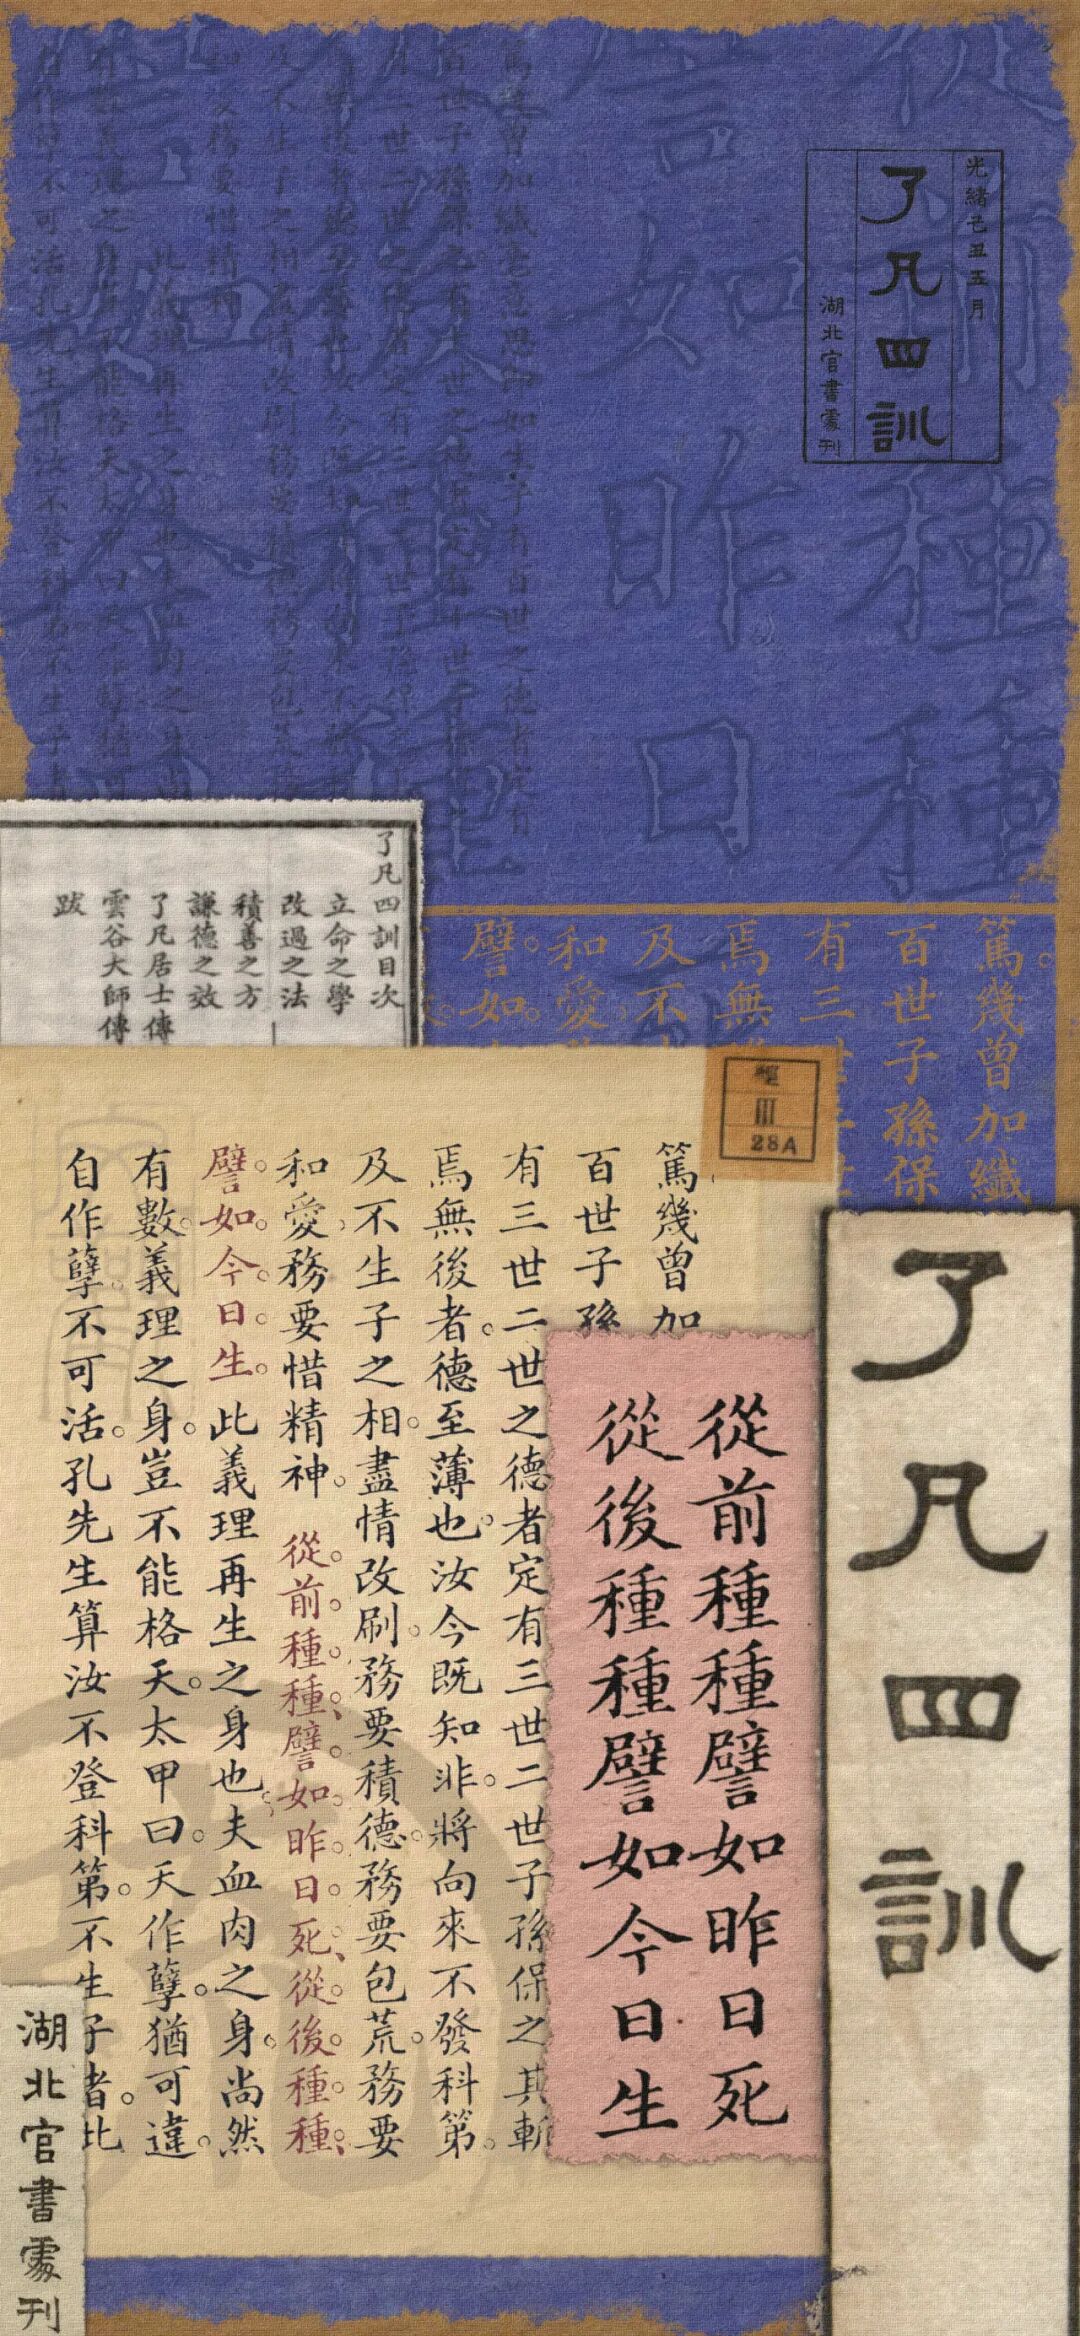 光緒己丑五月
了凡四訓
湖北官書處刊
了凡四訓目次
立命之學
改過之法
積善之方
謙德之效
了凡居士傳
雲谷大師傳
跋
篤。幾曾加纖
百世子孫保
有三世二世
焉無後
及不生
和愛
譬。如
28A
篤幾曾加
百世子孫
有三世二世之德者定有三世二世子孫保之其斬
焉無後者。德至薄也。汝今既知非。將向來不發科第。
及不生子之相。盡情改刷。務要積德。務要包荒。務要
和愛。務要惜精神。從前種種、譬如昨日死、從後種種、
譬如今日生。此義理再生之身也。夫血肉之身。尚然
有數。義理之身。豈不能格天。太甲曰。天作孽。猶可違。
自作孽。不可活。孔先生算汝不登科第。不生子者。此
從前種種譬如昨日死
從後種種譬如今日生
了凡四訓
湖北官書處刊